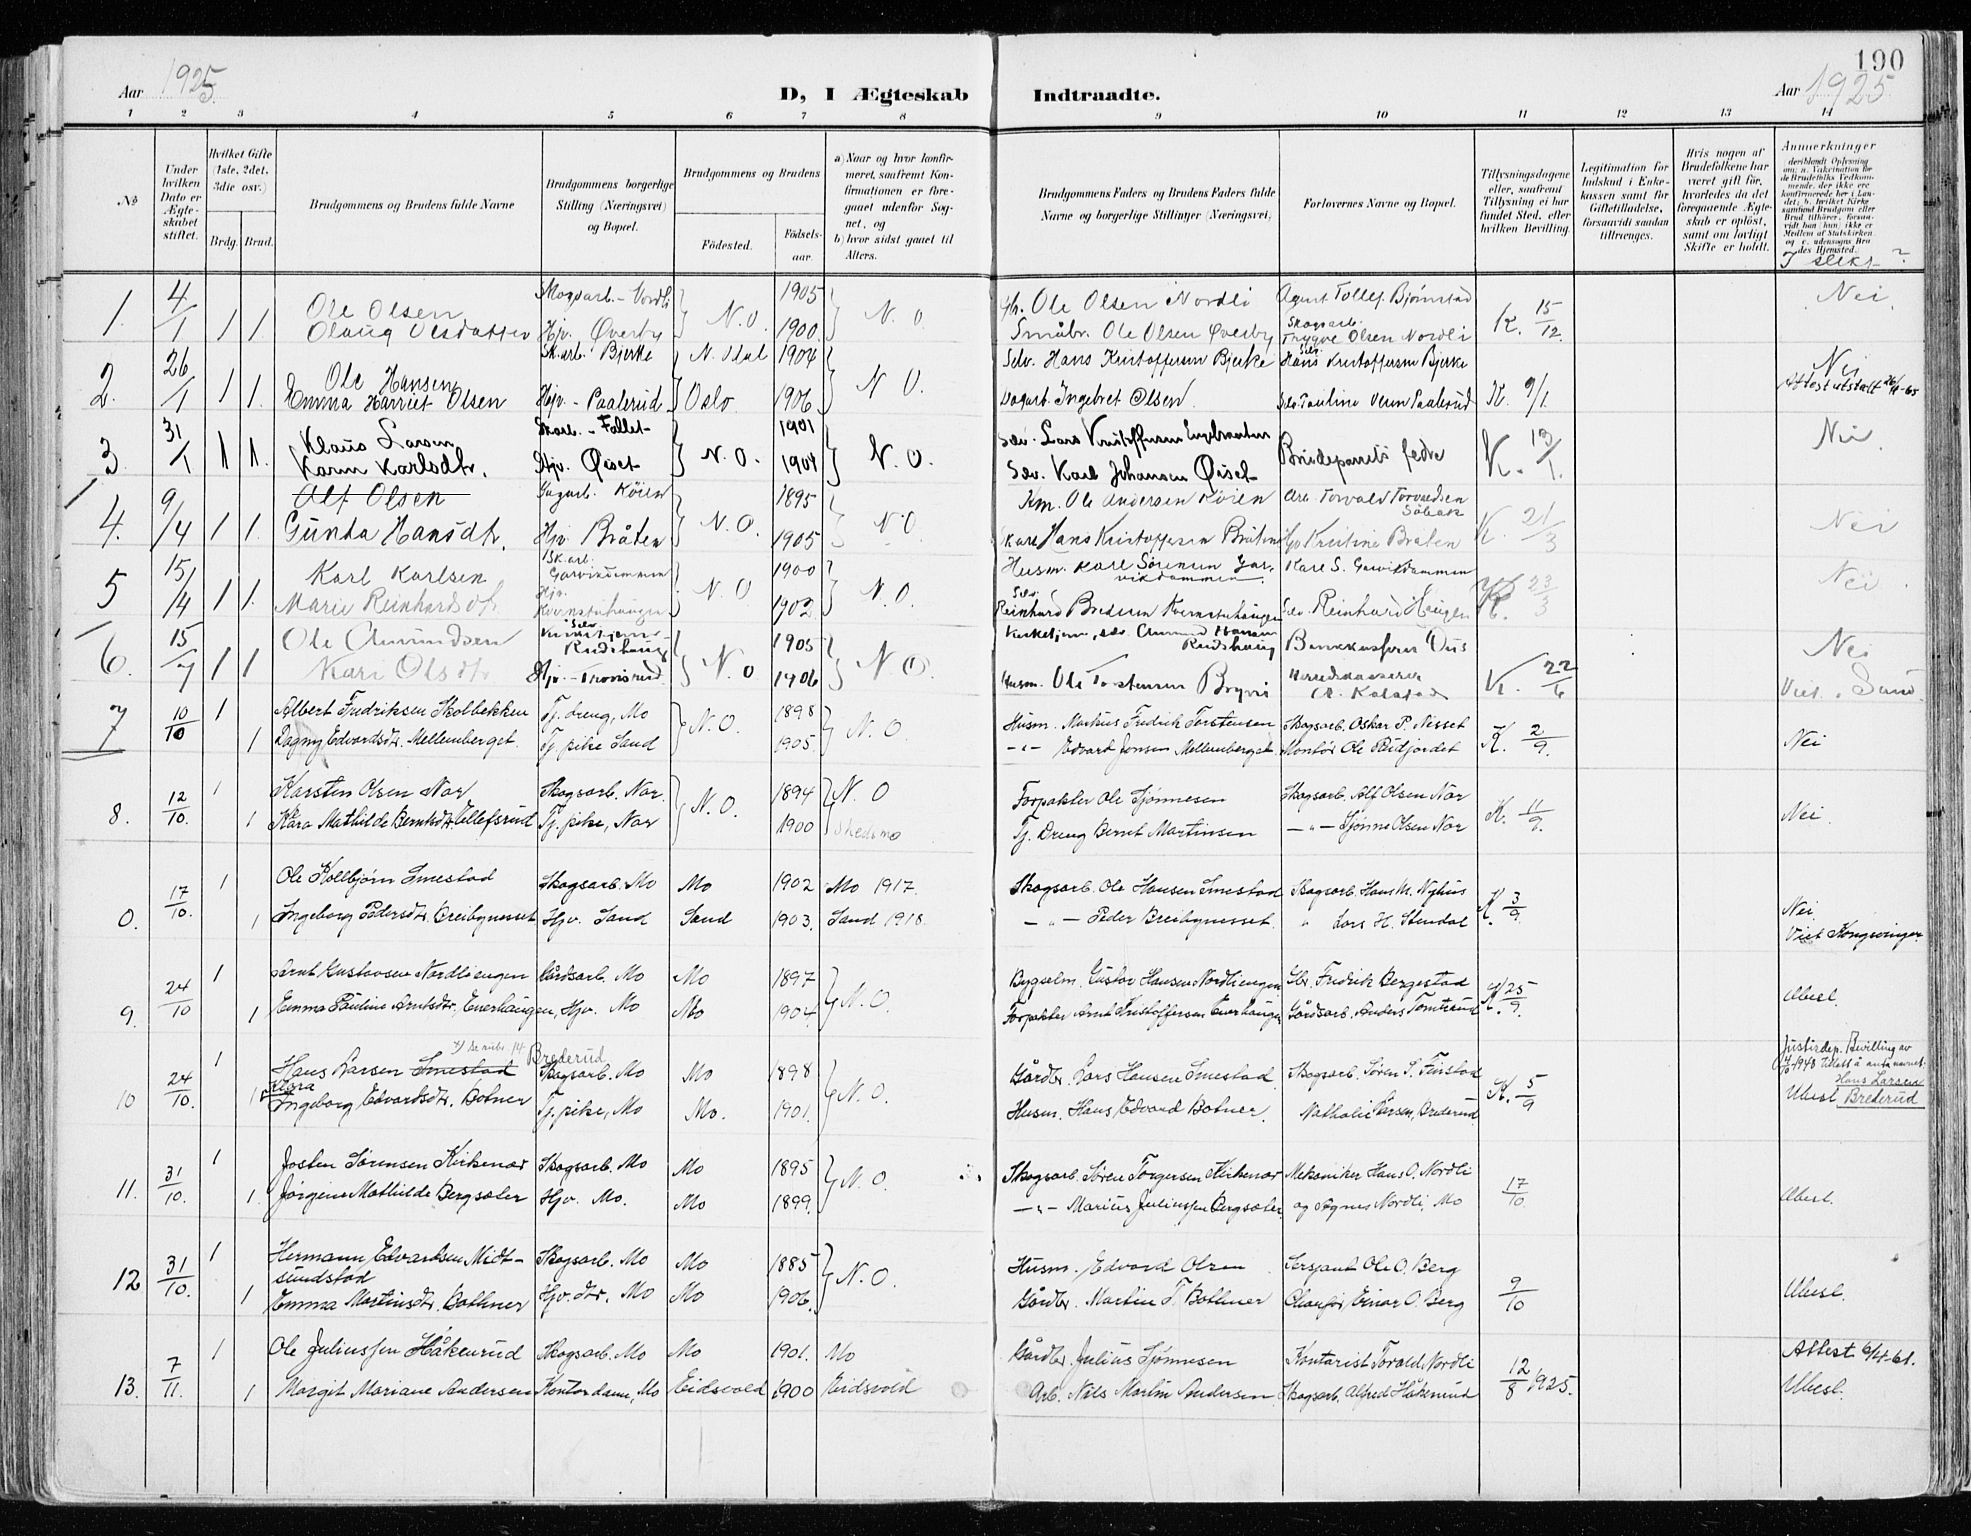 190
Aar 1925
D, I Ægteskab
Indtraadte.
Aar 1925
1 2 3 4 5 6 7 8 9 10 11 12 13 14
№
Under hvilken Dato er Ægteskabet stiftet.
Hvilket Gifte (1ste, 2det, 3die osv.)
Brdg. Brud.
Brudgommens og Brudens fulde Navne
Brudgommens borgerlige Stilling (Næringsvei) og Bopæl.
Brudgommens og Brudens
Fødested.
Fødselsaar.
a) Naar og hvor konfirmeret, saafremt Konfirmationen er foregaaet udenfor Sognet, og
b) hvor sidst gaaet til Alters.
Brudgommens Faders og Brudens Faders fulde Navne og borgerlige Stillinger (Næringsvei)
Forlovernes Navne og Bopæl.
Tillysningsdagene eller, saafremt Tillysning ei har fundet Sted, efter hvilken Bevilling.
Legitimation for Indskud i Enkekassen samt for Giftetilladelse, forsaavidt saadan tiltrænges.
Hvis nogen af Brudefolkene har været gift før, hvorledes da det foregaaende Ægteskab er opløst, samt om lovligt Skifte er holdt.
Anmerkninger
deriblandt Oplysning om; a. Vakcination for de Brudefolks Vedkommende, der ikke ere konfirmerede her i Landet; b. hvilket Kirkesamfund Brudgom eller Brud tilhører, forsaavidt han (hun) ikke er Medlem af Statskirken, og c. udensogns Brudes Hjemsted.
I slekt ?
4 Ole Olsen Skogsarb. - Nordli 1905 Gbr. Ole Olsen Nordli Agent Tollef Bjørnstad 15 Nei
1. 1 1 1. Olaug Olsdatter Hjv. Øverby N. O. 1900. N. O. Småbr. Ole Olsen Øverby Skogsarb. Trygve Olsen Nordli K. 12.
26 Ole Hansen Sk.arb. Bjerke N. Odal 1904 Selv. Hans Kristoffersen Bjerke Selv. Hans Kristoffersen Bjerke Nei
2. 1 1 1. Emma Harriet Olsen Hjv. - Paalerud Oslo 1906 N O. Dagarb. Ingebret Olsen Paalerud K. 9/1. Attest utstedt
31 Klaus Larsen Skarb. - Fallet 1901 Selv. Lars Kristoffersen 13 Nei
3 1 1 1. Karen Karlsdtr. Hjv. Øiset N. O. 1904 N. O. Selv. Karl Johansen Øiset Brudeparets fedre K. 1.
9 Alf Olsen Køien 1895 Km. Ole Andersen Køien Arb. Torvald Torvaldsen 21
4. 4 1 1. Gunda Hansdtr. Hjv. Bråten N. O. 1905 N. O. Hans Kristoffersen Bråten Hjv. Kristine Bråten K. 3 Nei
15 Karl Karlsen Sk.arb. 1900 Husm. Karl Sørensen Garvikdammen Karl S. Garvikdammen 23 Nei
5 4 1 1. Marie Reinhardsdtr. Hjv. Kvernstuhaugen N. O 1902 N. O. Selv. Reinhard Kvernstuhaugen Selv. Reinhard Haugen K. 3
15 Ole Amundsen Selv. Rudshaug 1905 Kirketjener, selv. Amund Hansen Rudshaug Nei
6. 7 1 1 Kari Olsdtr. Hjv. N. O 1906 N O. Husm. Ole Torstensen K. 22/6 Viet i Sand
7 10/10 1 Albert Fredriksen Skolbekken Tj. dreng, Mo N. O. 1898 N. O. Husm. Markus Fredrik Torstensen Skogsarb. Oskar P. Nisset K. 2/9.
1 Dagny Edvardsdtr. Mellemberget Tj. pike Sand 1905. -"- Edvart Jensen Mellemberget Montør Ole Rudjordet Nei
8. 12/10. 1 Karsten Olsen Nor Skogsarb. Nor N. O. 1894 N. O Forpakter Ole Tjønnesen Skogsarb. Alf Olsen Nor K. 11/9. Nei
1 Kåra Mathilde Berntsdtr. Tellefsrud Tj. pike, Nor 1900 Skedsmo Tj. Dreng Bernt Martinsen -"- Tjønne Olsen Nor
0. 17/10. 1 Ole Kolbjørn Smestad Skogsarb. Mo Mo 1902 Mo 1917. Skogsarb. Ole Hansen Smestad Skogsarb. Hans M. Nyhus K. 3/9. Nei
1 Ingeborg Pedersdtr. Breibynesset Hjv. Sand Sand 1903. Sand 1918. -"- Peder Breibynesset. " Lars H. Stendal Viet Kongsvinger
9. 24/10 1 Arnt Gustavsen Nordliengen Gårdsarb. Mo Mo 1897 N. O. Bygselm. Gustav Hansen Nordliengen Gbr. Fredrik Bergestad K. 25/9. Ubesl.
1 Emma Pauline Arntsdtr. Enerhaugen, Hjv. Mo Mo 1904 Forpakter Arnt Kristoffersen Enerhaugen Gårdsarb. Anders Tomterud
x) Se rubr. 14 Brederud
10 24/10. 1 Hans Larsen Smestad Skogsarb. Mo Mo 1898 N. O. Gårdbr. Lars Hansen Smestad Skogsarb. Søren S. Finstad K. 5/9 Justisdep. Bevilling av 1948 tillatt å anta navnet: Hans Larsen Brederud
1 Klara Ingeborg Edvardsdtr. Botner Tj. pike, Mo Mo. 1901. Husm. Hans Edvard Botner. Nathalie Larsen, Brederud Ubesl
11. 31/10. 1 Josten Sørensen Kirkenær Skogsarb. Mo Mo 1895 N. O. Skogsarb. Søren Torgersen Kirkenær Mekaniker Hans O. Nordli 17/10 Ubesl.
1. Jørgine Mathilde Bergsæter Hjv. Mo. Mo 1899. -"- Marius Julinssen Bergsæter. og Agnes Nordli, Mo
12 31/10. 1 Hermann Edvardsen Midtsundstad Skogsarb. Mo Mo 1885 N. O. Husm. Edvard Olsen Sersjant Ole O. Berg 9/10 Ubesl.
1 Emma Martinsdtr. Bothner Hjv. dtr, Mo Mo 1906. Gårdbr. Martin T. Bothner Chauffør, Einar O. Berg
13. 7/11. 1 Ole Julinssen Håkenrud Skogsarb. Mo Mo 1901. Mo Gårdbr. Julius Tjønnesen Kontorist Torald Nordli 12/8 1925. Attest 6/4-61.
1 Margit Mariane Andersen Kontordame, Mo Eidsvold 1900 Eidsvold Arb. Nils Martin Andersen Skogsarb. Alfred Håkenrud Ubesl.